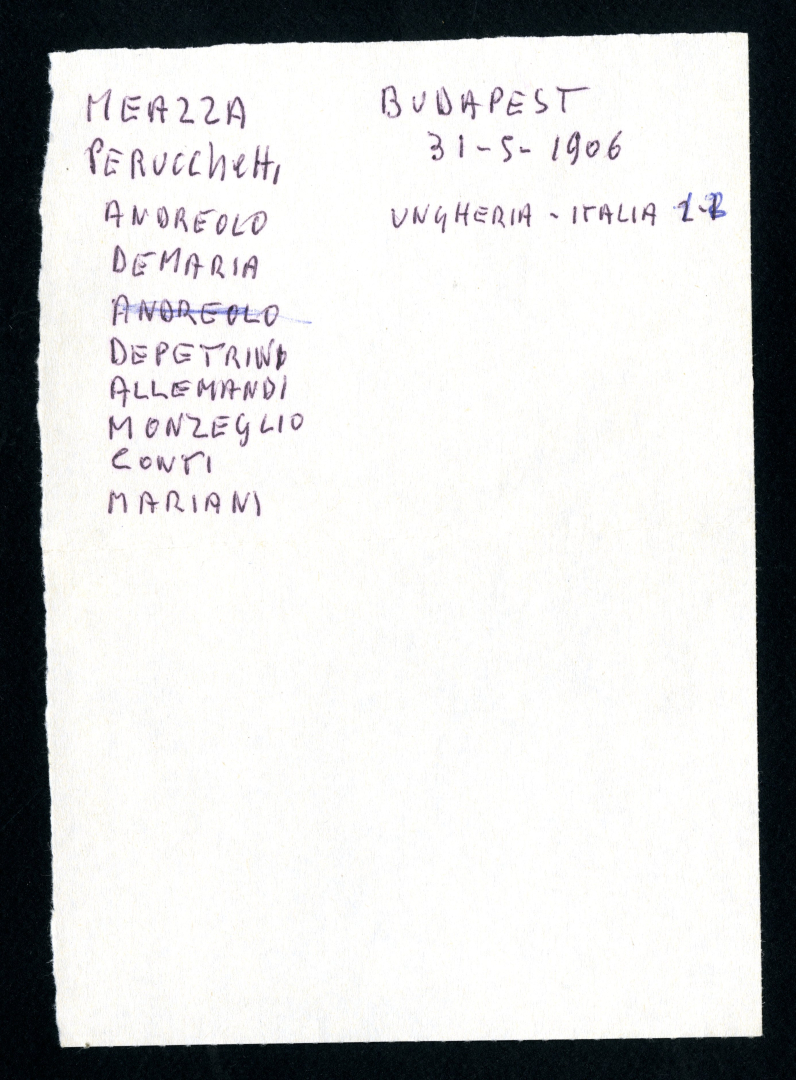 MEAZZA
PERUCCHETTI
ANDREOLO
DEMARIA
ANDREOLO
DEPETRINI
ALLEMANDI
MONZEGLIO
CONTI
MARIANI
BUDAPEST
31-5-1906
UNGHERIA - ITALIA